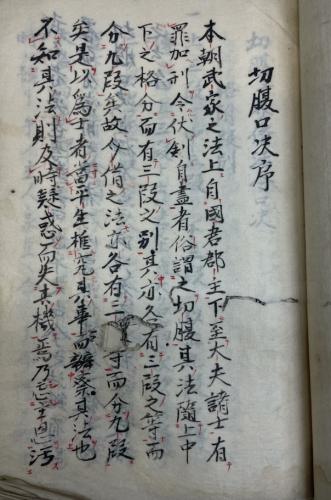 切腹口决序
本朝武家之法上自國君郡主下至大夫諸士有
罪加刑令伏劍自盡者俗謂之切腹其法隨上中
下之格分而有三段之別其亦各有三段之等而
分九段矣故介借之法亦各有三 等而分九段
矣是以為士者當平生推究其事而辨察其法也
不知其法則及時疑惑而失其機焉乃